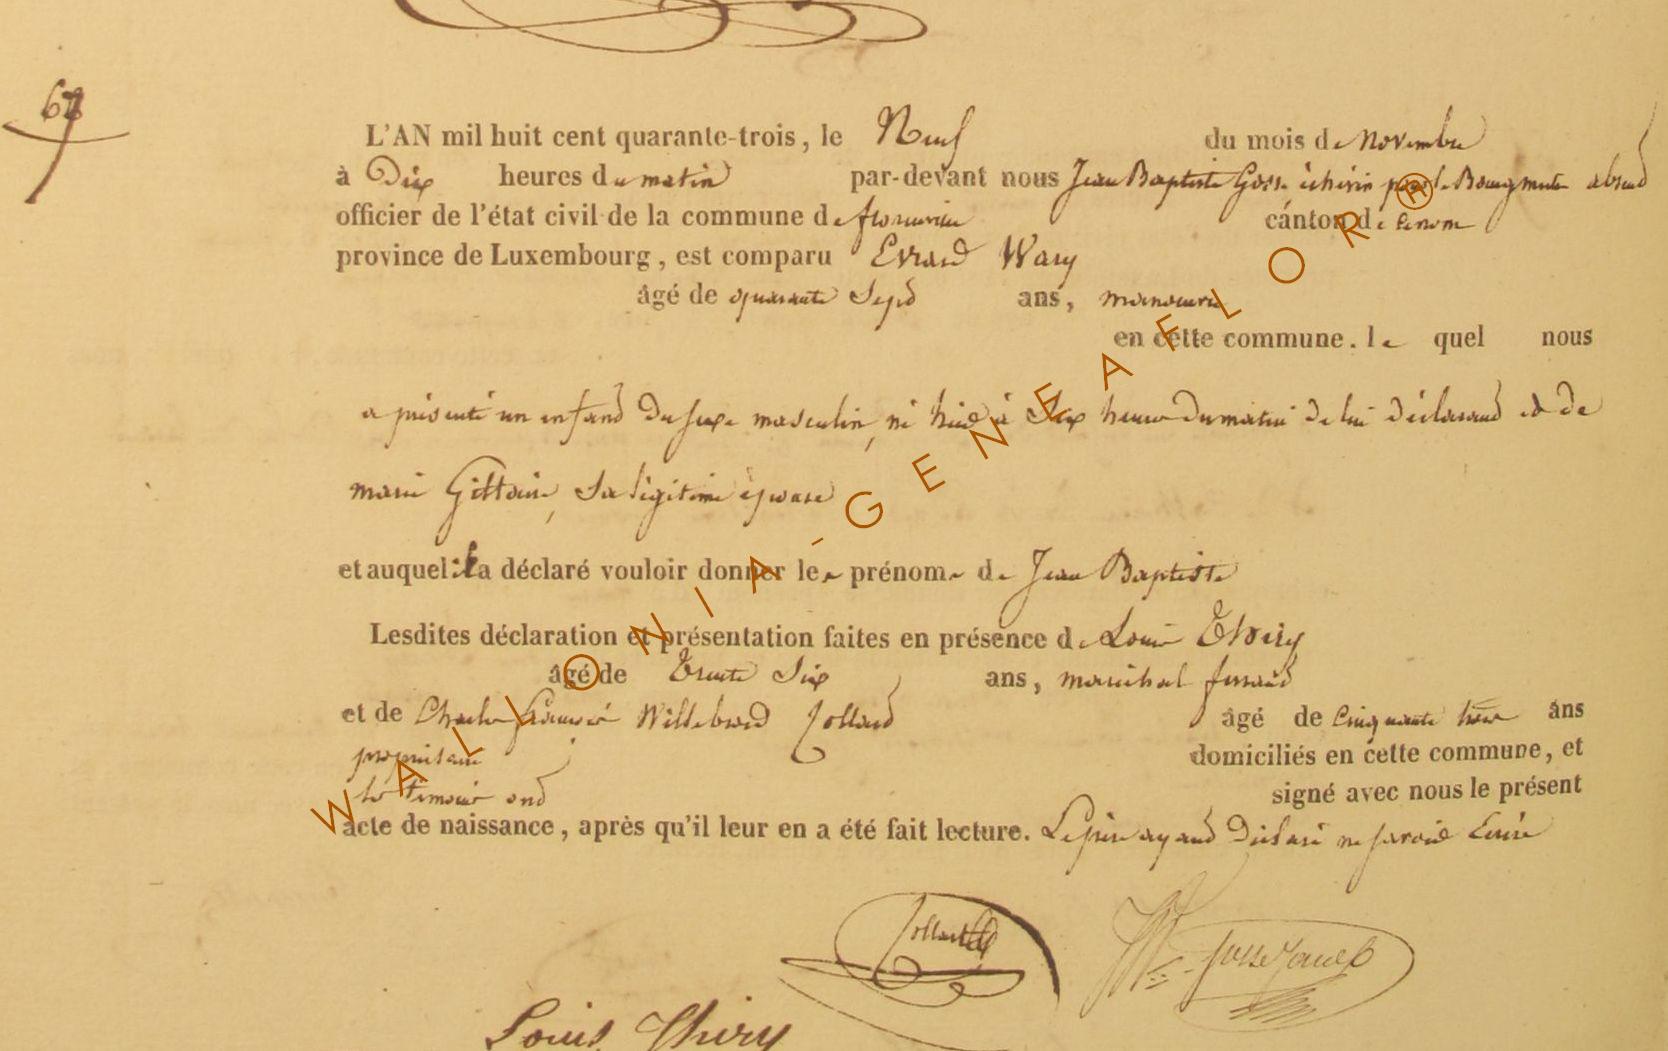 68
L'AN mil huit cent quarante-trois, le Neuf du mois de Novembre
à Dix heures du matin par-devant nous Jean Baptiste Gosse échevin pour le Bourgmestre absent
officier de l'état civil de la commune de florenville canton de idem
province de Luxembourg, est comparu Evrard Wary
âgé de quarante Sept ans, manoeuvre
en cette commune. le quel nous
a présenté un enfant du sexe masculin, né hier à Dix heures du matin de lui déclarant et de
marie Gillaine, Sa légitime épouse
et auquel il a déclaré vouloir donner le prénom de Jean Baptiste
Lesdites déclaration et présentation faites en présence de Louis Thiry
âgé de Trente Six ans, maréchal ferrant
et de Charles François Willebrord Collard âgé de Cinquante trois ans
propriétaire domiciliés en cette commune, et
les témoins ont signé avec nous le présent
acte de naissance, après qu'il leur en a été fait lecture. Le père ayant Déclaré ne savoir Ecrire
Collard
Louis Thiry
WALLONIA-GENEAFLOR®